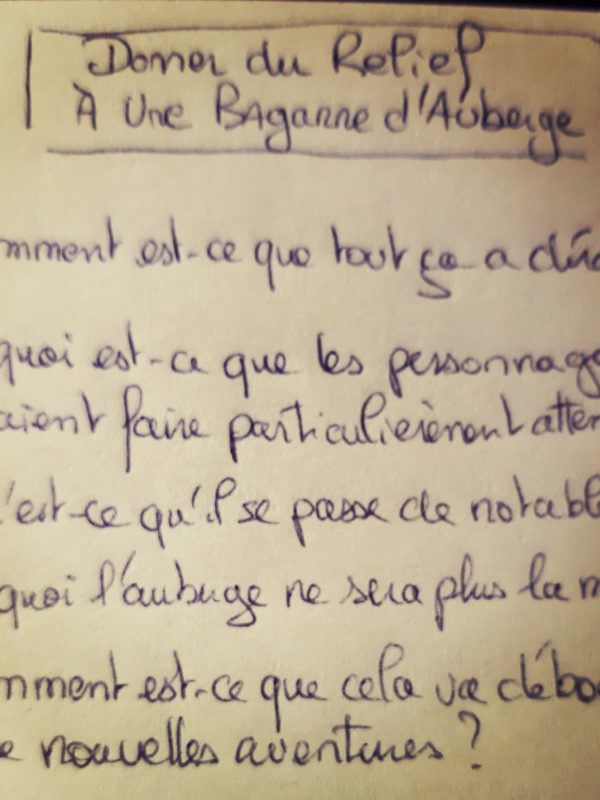 Donner du Relief
À Une BAgarre d'Auberge
mment est-ce que tout ça a dé
quoi est-ce que les personnag
aient faire particulièrement atten
'est-ce qu'il se passe de notabl
quoi l'auberge ne sera plus la m
mment est-ce que cela va débo
e nouvelles aventures ?